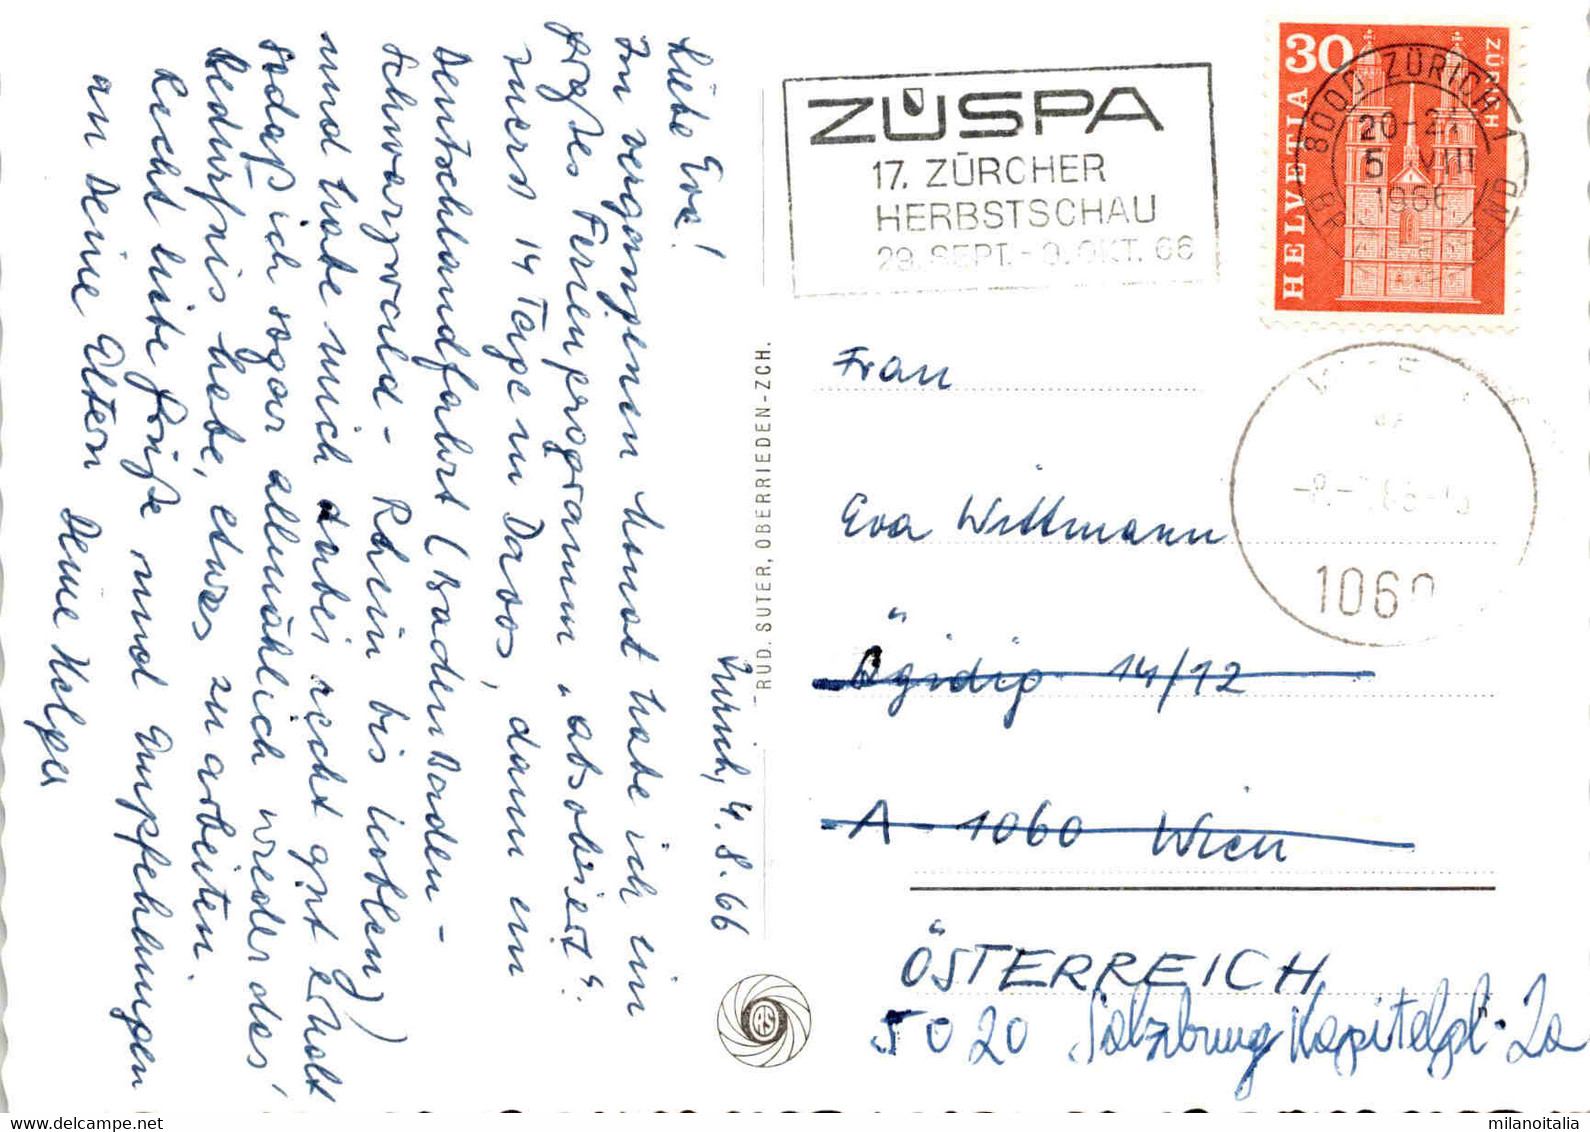 Zürich, 4.8.66
Liebe Eva!
Im vergangenen Monat habe ich ein
großes Ferienprogramm „absolviert“:
zuerst 14 Tage in Davos, dann ein
Deutschlandfahrt (Baden Baden -
Schwarzwald - Rhein bis Koblenz)
und habe mich dabei recht gut erholt
sodaß ich sogar allmählich wieder das
Bedürfnis habe, etwas zu arbeiten.
Recht liebe Grüße und Empfehlungen
an Deine Eltern Deine Helga
RUD. SUTER, OBERRIEDEN-ZCH.
RS
ZÜSPA
17. ZÜRCHER
HERBSTSCHAU
29. SEPT. - 9. OKT. 66
30
HELVETIA
ZÜRICH
8000 ZÜRICH 1
20-21
5. VIII
1966
1060
Frau
Eva Wittmann
Ägidig. 14/12
A - 1060 Wien
ÖSTERREICH
5020 Salzburg Kapitelpl. 2a
milanoitalia